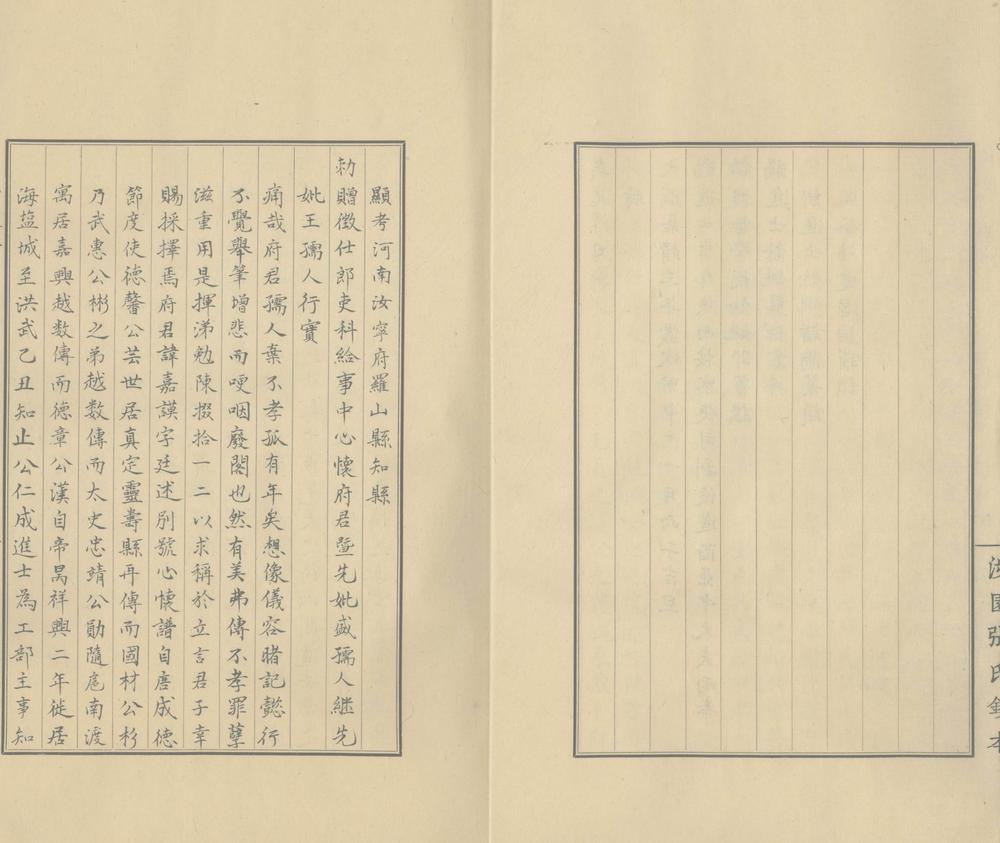 洪園張氏鈔本
顯考河南汝寧府羅山縣知縣
勑贈徵仕郎吏科給事中心懷府君曁先妣盛孺人継先
妣王孺人行實
痛哉府君孺人棄不孝孤有年矣想像儀容睹記懿行
不覺舉筆增悲而哽咽廢閣也然有美弗傳不孝罪孽
滋重用是揮涕勉陳掇拾一二以求稱於立言君子幸
賜採擇焉府君諱嘉謨字廷述別號心懷譜自唐成德
節度使德馨公芸世居真定靈壽縣再傳而國材公杉
乃武惠公彬之弟越数傳而太史忠靖公勛隨扈南渡
寓居嘉興越数傳而德章公漢自帝昺祥興二年徙居
海塩城至洪武乙丑知止公仁成進士為工部主事知